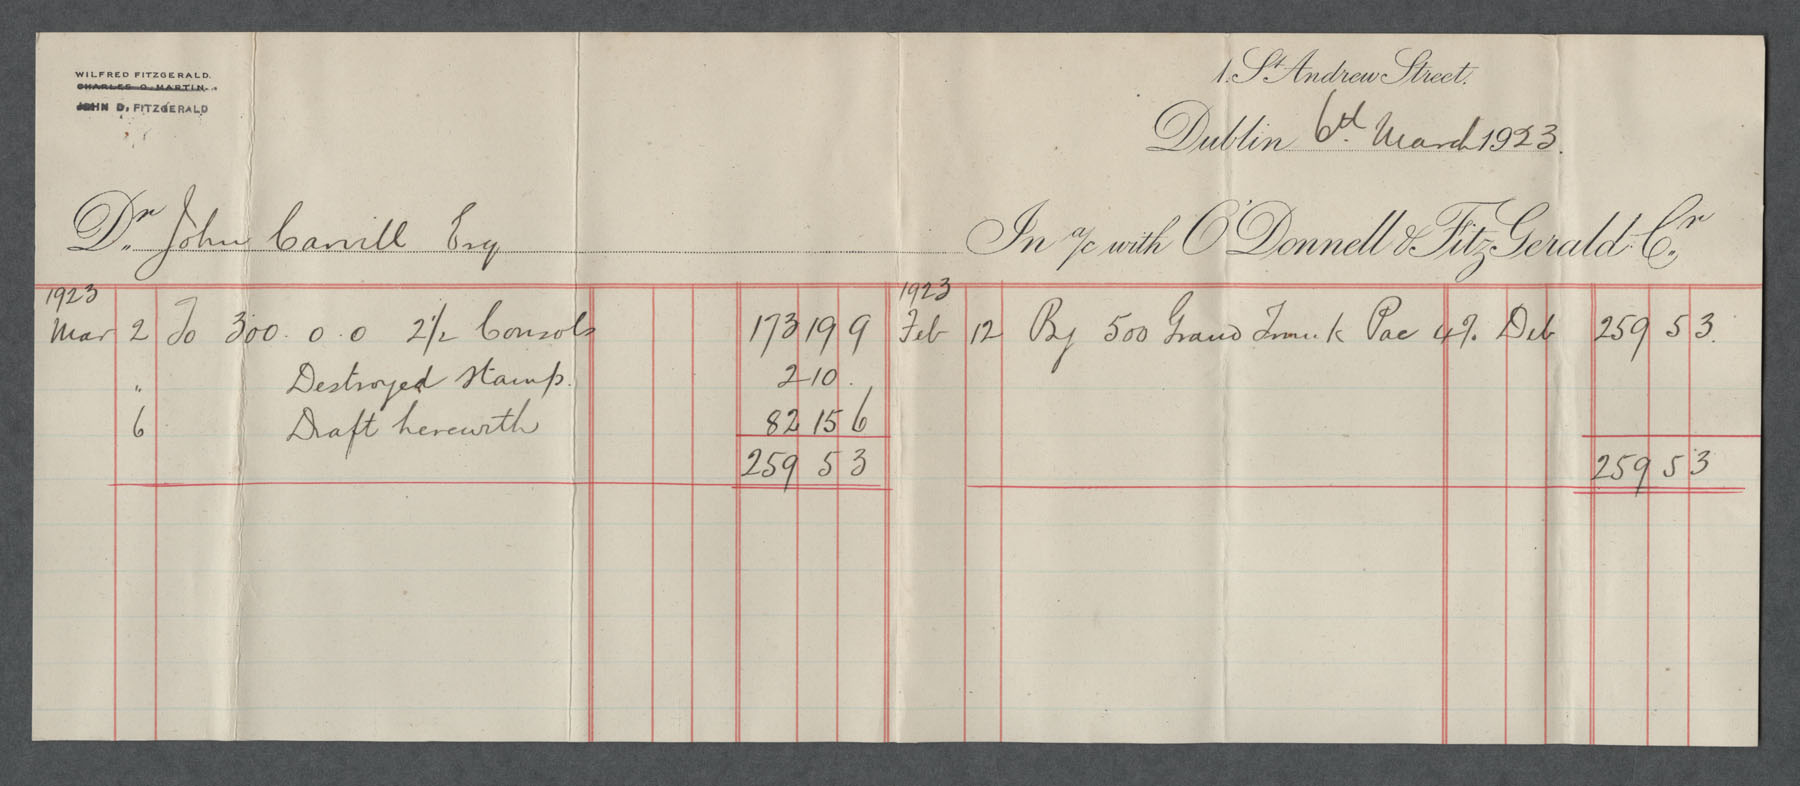 WILFRED FITZGERALD.
CHARLES O. MARTIN.
JOHN D. FITZGERALD
1. St. Andrew Street.
Dublin 6th March 1923.
Dr. John Carvill Esq In a/c with O'Donnell & FitzGerald. Cr.
1923 1923
Mar 2 To 300. 0. 0 2½ Consols 173 19 9 Feb 12 By 500 Grand Trunk Pac 4% Deb 259 5 3.
" Destroyed Stamp. 2 10 .
6 Draft herewith 82 15 6
259 5 3 259 5 3